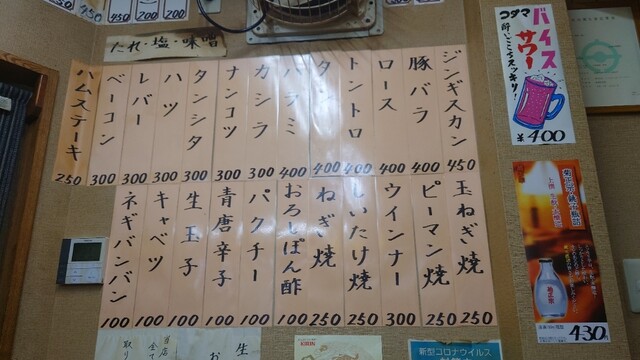 450
200
200
たれ・塩・味噌
ジンギスカン 450
豚バラ 400
ロース 400
トントロ 400
タン 400
ハラミ 400
カシラ 300
ナンコツ 300
タンシタ 300
ハツ 300
レバー 300
ベーコン 300
ハムステーキ 250
玉ねぎ焼 250
ピーマン焼 250
ウインナー 300
しいたけ焼 250
ねぎ焼 250
おろしぽん酢 100
パクチー 100
青唐辛子 100
生玉子 100
キャベツ 100
ネギバンバン 100
コダマ
バイスサワー
酔いごこちスッキリ!
¥400
菊正宗の銚子瓶
430
新型コロナウイルス
KIRIN
生
お
当店
全て
取り